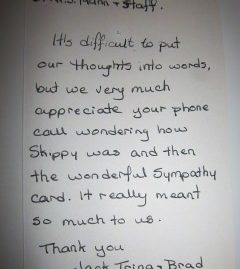 Mann + Staff.
It's difficult to put
our thoughts into words,
but we very much
appreciate your phone
call wondering how
Skippy was and then
the wonderful Sympathy
card. It really meant
so much to us.
Thank you
Brad